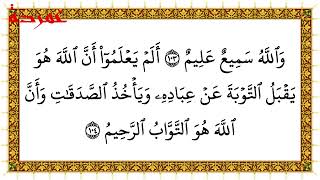 وَٱللَّهُ سَمِيعٌ عَلِيمٌ ١٠٣ أَلَمۡ يَعۡلَمُوٓاْ أَنَّ ٱللَّهَ هُوَ
يَقۡبَلُ ٱلتَّوۡبَةَ عَنۡ عِبَادِهِۦ وَيَأۡخُذُ ٱلصَّدَقَٰتِ وَأَنَّ
ٱللَّهَ هُوَ ٱلتَّوَّابُ ٱلرَّحِيمُ ١٠٤